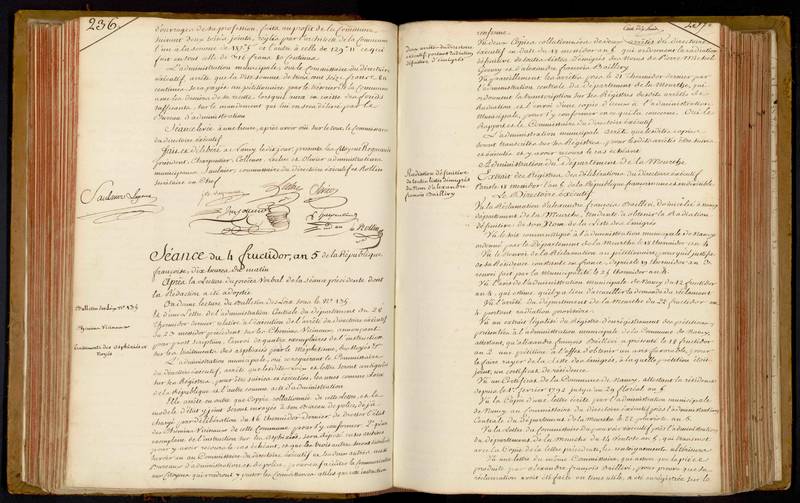 236.
d'ouvrages de sa profession, faits au profit de la Commune
suivant deux états joints, réglés par l'architecte de la Commune
l'un à la somme de 187 et l'autre à celle de 129 ce qui
fait en tout celle de 316 francs 80 Centimes
L'administration municipale, ouï le Commissaire du directoire
exécutif, arrête que la dite somme de trois cent seize francs 80
centimes, sera payée au pétitionnaire, par le Receveur de la Commune
suffisants, sur le mandement qui lui en sera délivré par le
Bureau d'administration
Séance levée à une heure, après avoir ouï sur le tout, le Commissaire
du directoire exécutif
Fait et délibéré à Nancy les dits jour, présents les Citoyens
président, Charpentier, et Olivier administrateurs
municipaux, Saulnier, commissaire du directoire exécutif et Rollin
secrétaire en Chef
Rollin
Séance du 4 fructidor, an 5 de la République
française, dix heures du matin
Après la Lecture du procès Verbal de la Séance précédente dont
la Rédaction a été adoptée
Bulletin des Loix N° 135
On donne lecture du Bulletin des Loix sous le N° 135
et d'une Lettre de l'administration Centrale du département du 28
Thermidor dernier, relative à l'exécution de l'arrêté du directoire exécutif
Chemins Vicinaux
du 23 messidor précédent sur les Chemins Vicinaux, annonçant
l'envoi de quatre exemplaires de l'instruction
Traitements des asphixiés et
Noyés
sur les traitements des asphixiés par le Méphitisme, des Noyés
L'administration municipale, ouï et requérant le Commissaire
du directoire exécutif, arrête que les dites Loix et lettre seront
sur ses Registres, pour être suivies et exécutées, les unes comme Loix
de la République et l'autre comme acte d'administration
Elle arrête en outre que Copie collationnée de cette lettre, et le
modèle d'état y joint seront envoyés à son Bureau de police, déjà
chargé par délibération du 16 thermidor dernier de dresser l'état
des Chemins Vicinaux de cette Commune pour s'y conformer. Qu'un
exemplaire de l'instruction sur les asphixiés, sera déposé
pour y avoir recours le cas échéant, et que les trois autres seront
au Commissaire du directoire exécutif et aux deux autres, aux
Bureaux d'administration et de police, pour en faciliter la Communication
aux Citoyens qui voudront y puiser les Connaissances utiles que cette instruction
renferme
Deux arrêtés du directoire
exécutif, portant Radiation
définitive d'émigrés
Vu deux Copies collationnées de deux arrêtés du directoire
exécutif en date du 18 messidor an 5 qui ordonnent la radiation
définitive de toutes listes d'émigrés des Noms de Pierre Michel
et d'alexandre françois Baillivy
Vu pareillement les arrêtés pris le 21 Thermidor dernier par
l'administration centrale du Département de la Meurthe, qui
ordonnent la transcription sur ses Registres desdits arrêtés de
Radiation et l'envoi d'une copie d'iceux à l'administration
Municipale, pour s'y conformer en ce qui la concerne. Ouï le
Rapport et le Commissaire du directoire exécutif
L'administration municipale arrête que lesdites copies
seront transcrites sur ses Registres, pour lesdits arrêtés être suivis
et exécutés et y avoir recours le cas échéant
Administration du Département de la Meurthe
Radiation définitive
de toutes listes d'émigrés
du Nom d'alexandre
françois Baillivy
Extrait des Registres des délibérations du directoire exécutif
Paris le 18 messidor l'an 5 de la République française une et indivisible
Le Directoire exécutif
Vu la Réclamation d'alexandre françois Baillivi, domicilié à Nancy
département de la Meurthe, tendante à obtenir la Radiation
définitive de son Nom de la Liste des émigrés
Vu le soit communiqué à l'administration municipale de Nancy
ordonné par le Département de la Meurthe le 18 thermidor an 4
Vu le Renvoi de la Réclamation au pétitionnaire, pour qu'il justifie
de sa Résidence constante en france, depuis le 19 thermidor an 3
renvoi fait par la Municipalité le 25 thermidor an 4
Vu l'avis de l'administration municipale de Nancy du 12 fructidor
an 4, qui estime qu'il y a lieu d'accueillir la demande du réclamant
Vu l'arrêté du département de la Meurthe du 22 fructidor an
4 portant radiation provisoire
Vu un extrait légalisé du Registre d'enregistrement des pétitions
présentées à l'administration municipale de la Commune de Nancy
attestant, qu'alexandre françois Baillivi a présenté le 18 fructidor
an 2 une pétition à l'effet d'obtenir un avis favorable, pour
le faire rayer de la Liste des émigrés, à laquelle pétition était
joint, un certificat de résidence
Vu un Certificat de la Commune de Nancy, attestant la résidence
depuis le 1er février 1792 jusqu'au 24 floréal an 5
Vu la Copie d'une lettre écrite par l'administration municipale
de Nancy au Commissaire du directoire exécutif près l'administration
Centrale du Département de la Meurthe le 22 pluviôse an 5.
Vu la lettre du Commissaire du pouvoir exécutif près l'administration
du Département de la Meurthe du 14 Ventôse an 5, qui transmet
avec la Copie de la lettre précédente, les renseignements ultérieurs
Vu une lettre du même Commissaire, qui assure que la pièce
produite par alexandre françois Baillivi, pour prouver que sa
réclamation avait été faite en tems utile, a été enregistrée sur le